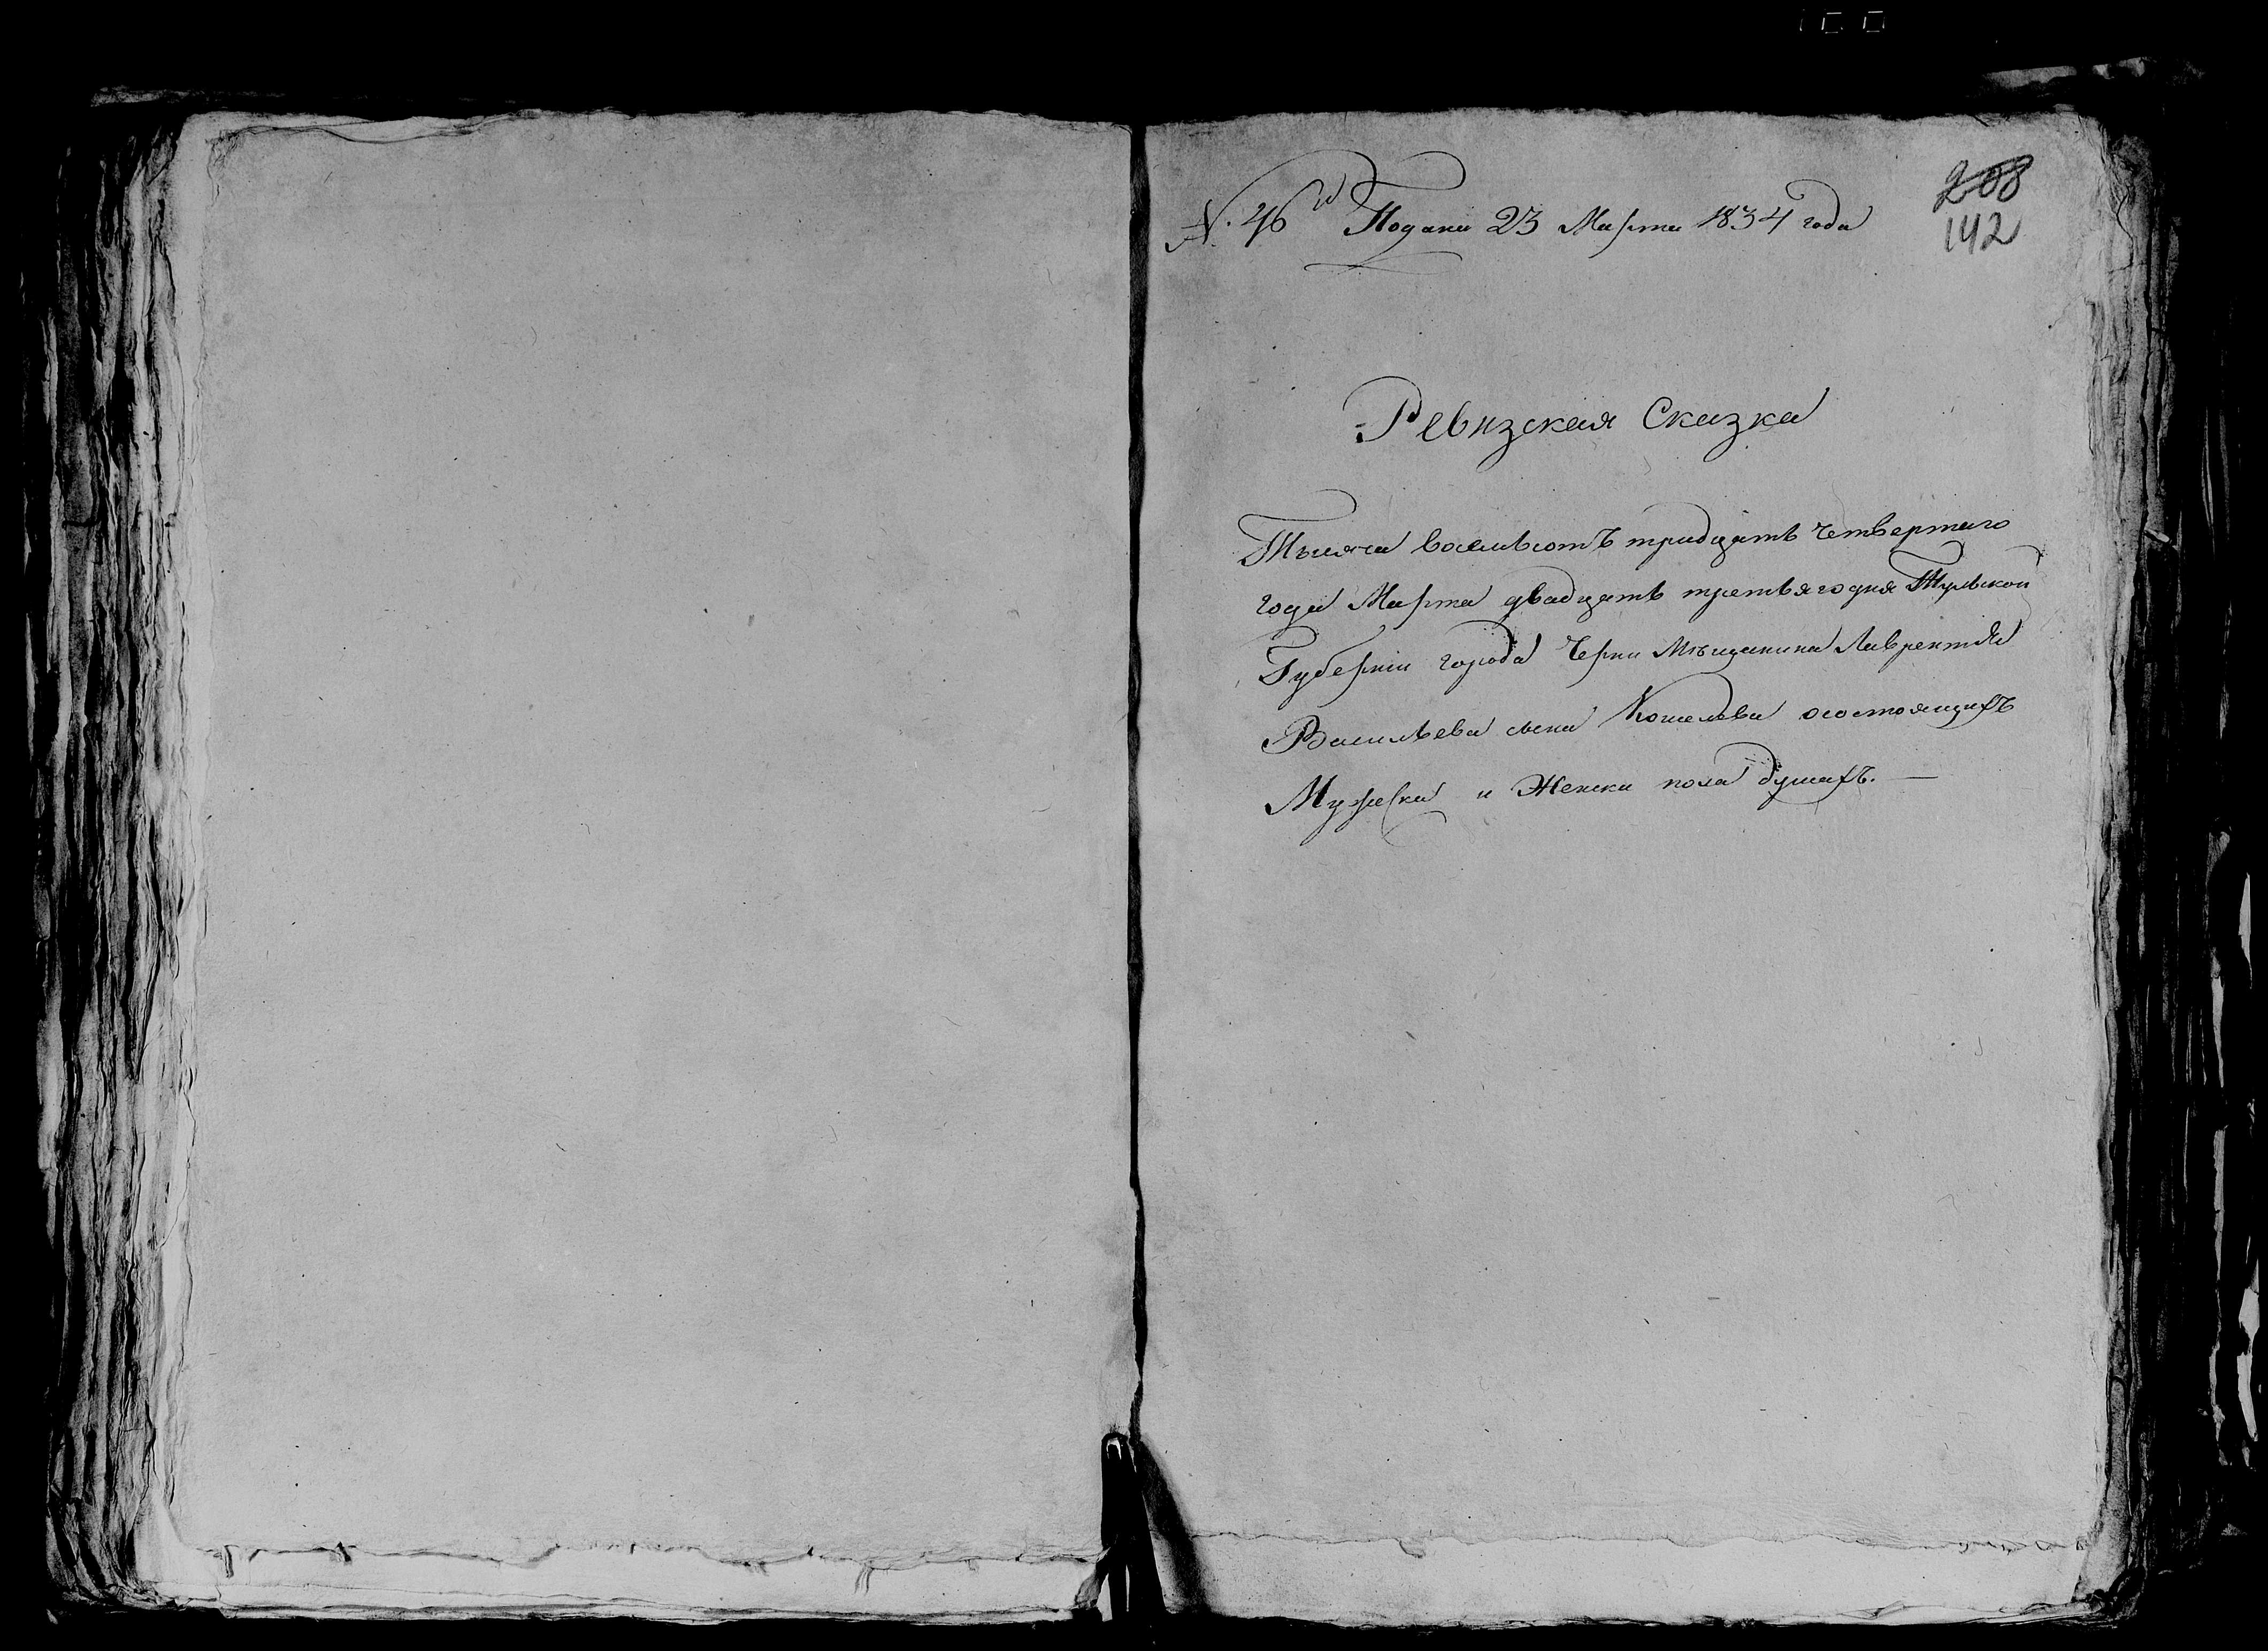 N. 46й Подана 23 Марта 1834 года
208
142
Ревизская Сказка
Тысяча восемьсотъ тридцать четвертаго
года Марта двадцать третьяго дня Тульской
Губерніи города Черни Мѣщанина Лаврентья
Васильева сына Кошелева осостоящихъ
Мужеска и Женска пола душахъ. —